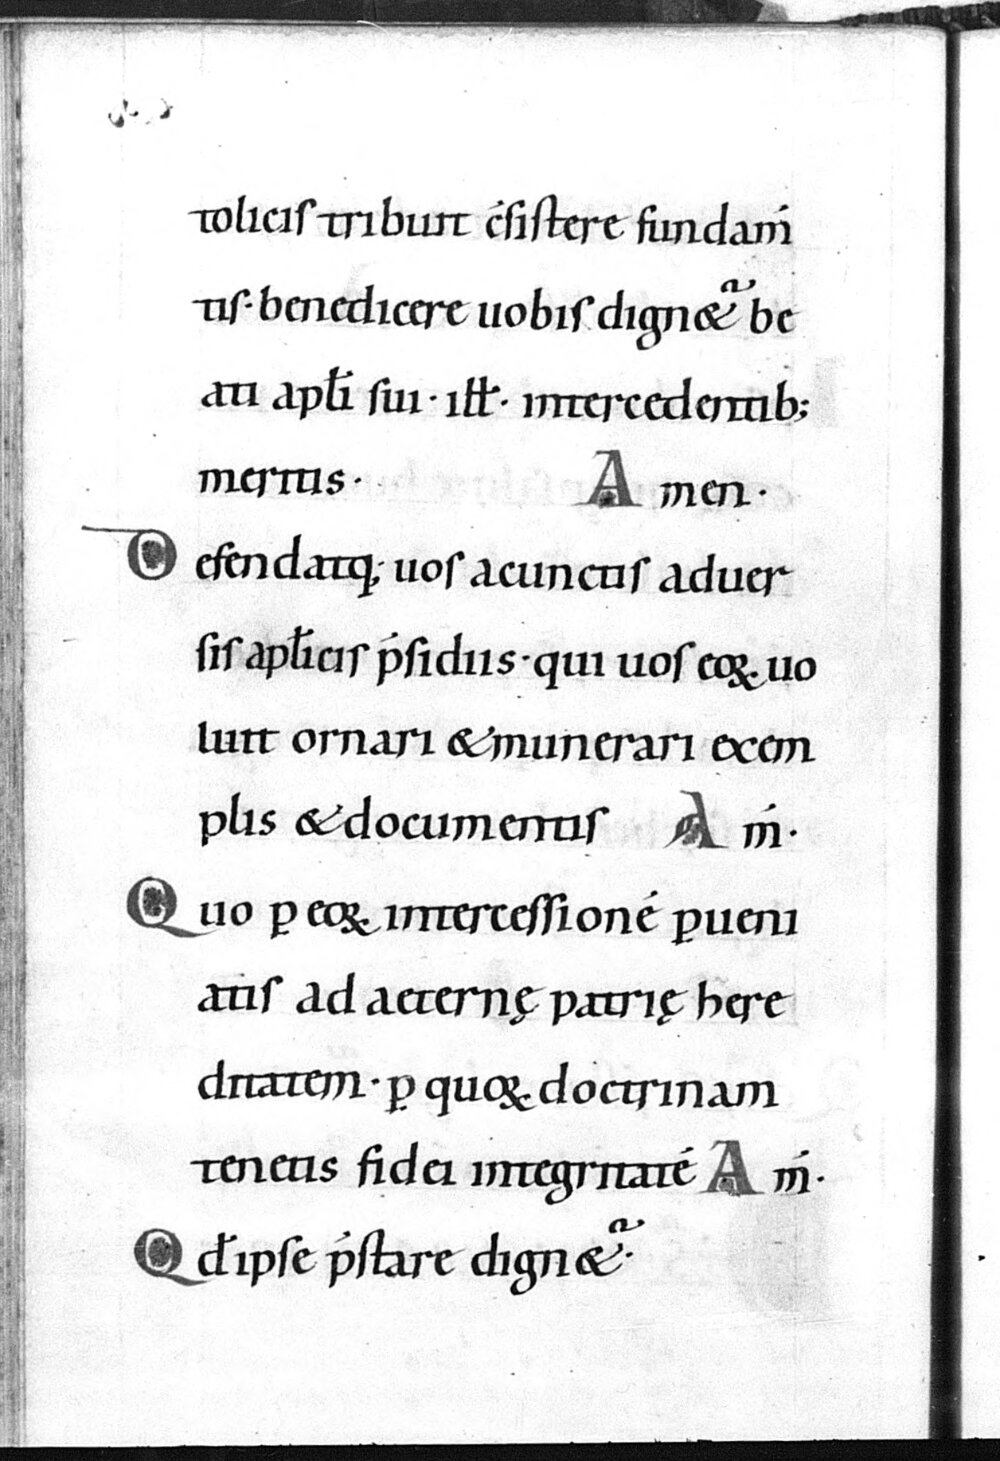 tolicis tribuit ćsistere fundaḿ
tis· benedicere uobis dign&ᷓ be
ati apłi sui · iłł · intercedentib;
meritis · Amen ·
Defendatq; uos a cunctis aduer
sis apłicis ṕsidiis · qui uos eoꝝ uo
luit ornari & munerari exem
plis & documentis Aḿ ·
Quo ꝑ eoꝝ intercessioné ꝑueni
atis ad aeternę patrię here
ditatem · ꝑ quoꝝ doctrinam
tenetis fidei integritaté Aḿ ·
Qđ ipse ṕstare dign&ᷓ ·